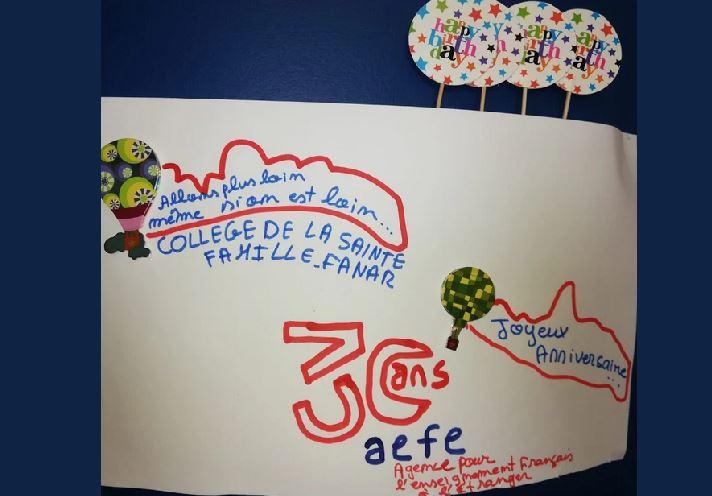 happy
birth
day
happy
birth
day
happy
birth
day
Allons plus loin
même si on est loin...
COLLEGE DE LA SAINTE
FAMILLE_FANAR
Joyeux
Anniversaire...
30 ans
aefe
Agence pour
l'enseignement Français
à l'étranger